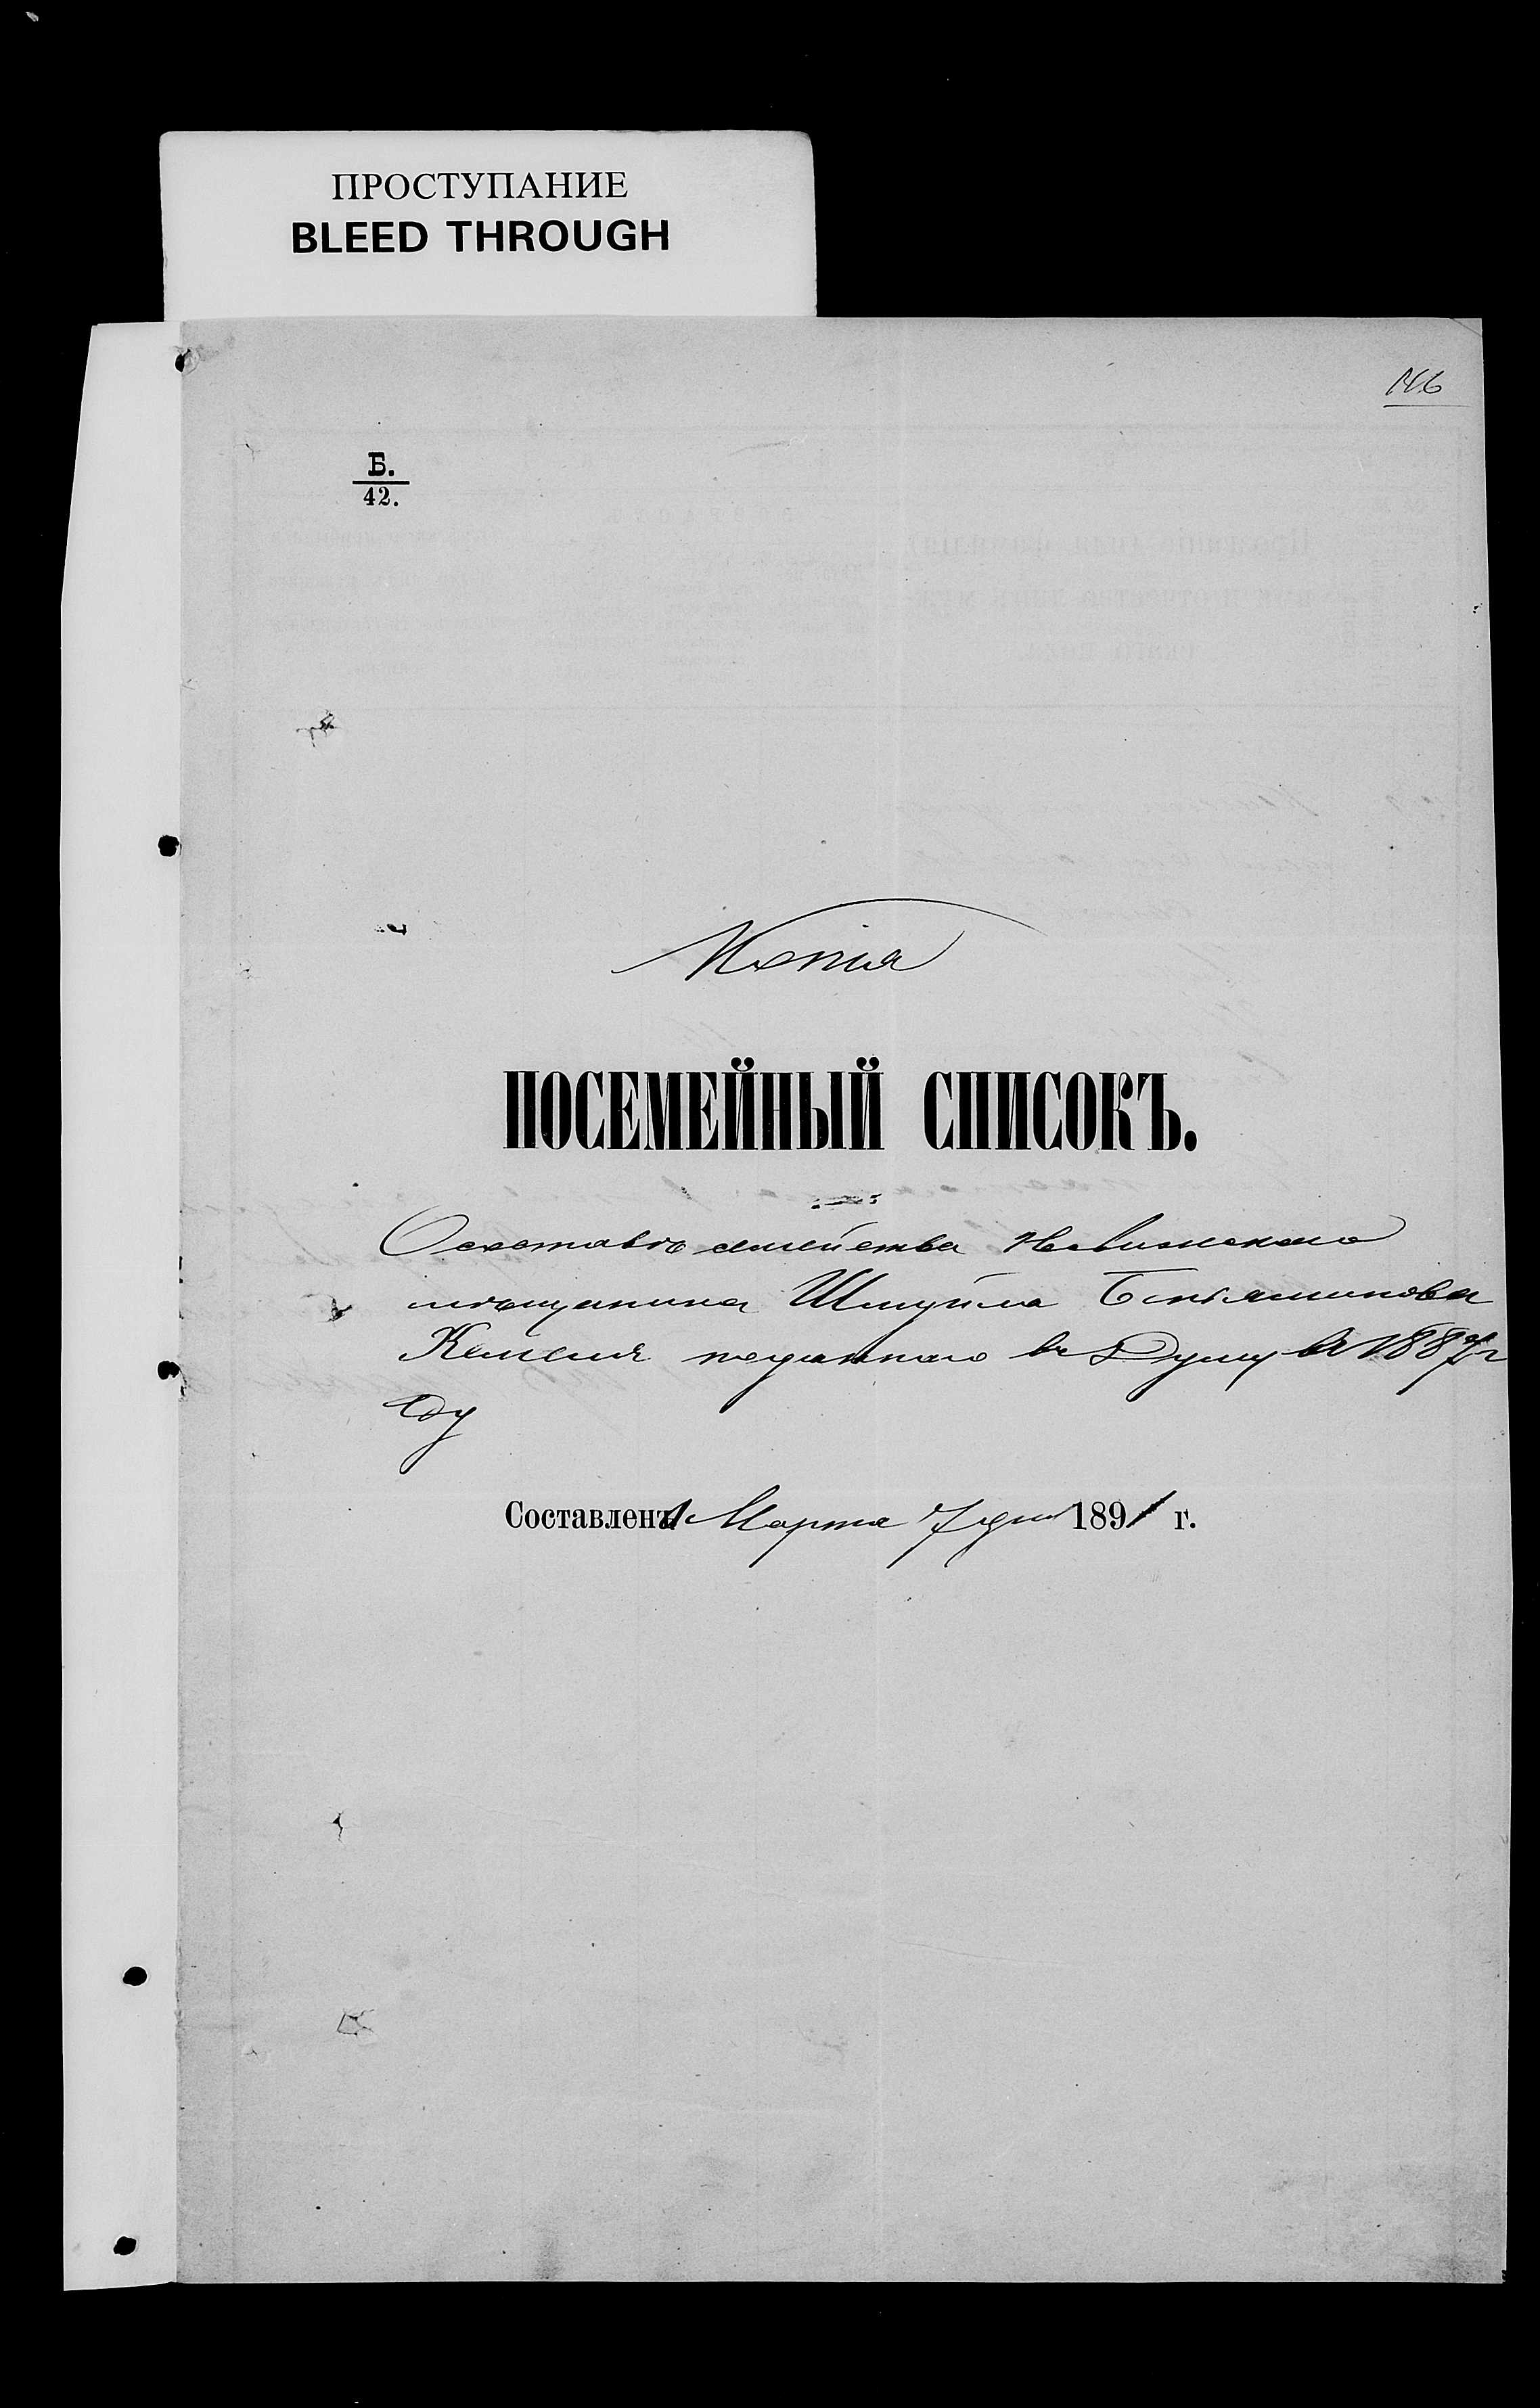 ПРОСТУПАНИЕ
BLEED THROUGH
146
Б.
42.
Копія
ПОСЕМЕЙНЫЙ СПИСОКЪ.
О составѣ семейства
мѣщанина Шмуйла Беньяминова
поданнаго въ Думу въ 1887 г
оду
Составленъ Марта 7 дня 1891 г.